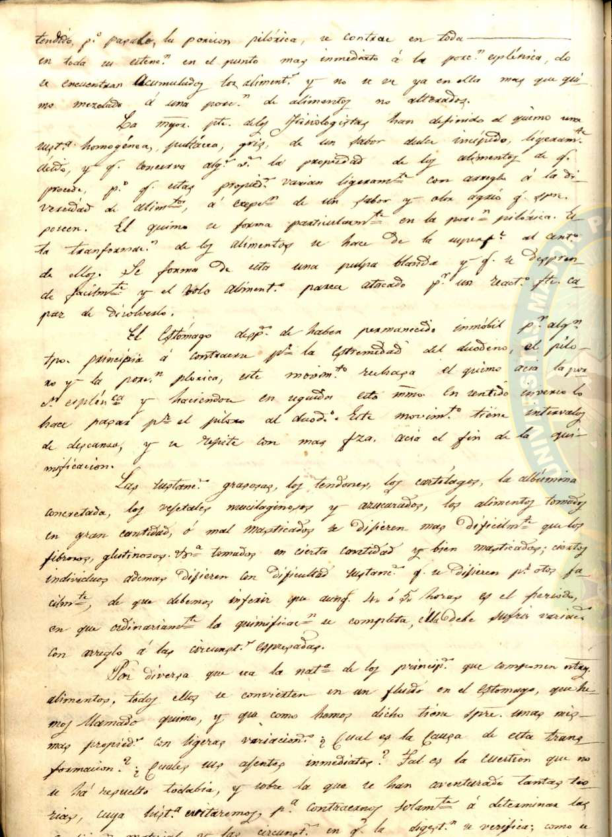 tendido, pª pasarlo, la porcion pilórica, se contrae en toda
en toda su esten.ⁿ en el punto mas inmediato á la porc.ⁿ esplénica, do
se encuentran acumulados los aliment.ˢ y no se ve ya en ella mas que qui
mo mezclado á una porc.ⁿ de alimentos no alterados.
La mayor pte. de los Fisiologistas han definido el quimo una
sust.ª homogénea, pultácea, gris, de un sabor dulce insipido, ligeram.te
ácido, y q. conserva alg.ˢ la propiedad de los alimentos de q.
procede, p.º q. estas propied.ˢ varian ligeram.te con arreglo á la di
versidad de alim.tos, á de un sabor y olor agrio q. spre.
poseen. El quimo se forma particularm.te en la porc.ⁿ pilórica. Es
ta transformac.ⁿ de los alimentos se hace de la superf.ᵉ al cent.º
de ellos. Se forma de esta una pulpa blanda y q. se despren
de facilm.te y el volo aliment.º parece atacado p.ʳ un react.º fte. ca
paz de disolverlo.
El Estomago desp.ˢ de haber permanecido inmóbil p.ʳ alg.ⁿ
tpo. principia á contraerse p.ʳ la estremidad del duodeno, el pilo
ro y la porc.ⁿ pilorica, este movim.to rechaza el quimo acia la por
c.ⁿ esplén.ca y haciendose en seguida este mmo en sentido inverso lo
hace pasar p.ʳ el piloro al duod.º. Este movim.to tiene intervalos
de descanso, y se repite con mas fza. acia el fin de la qui
mificacion.
Las sustanc.ˢ grasosas, los tendones, los cartílagos, la albumina
concretada, los vejetales mucilaginosos y azucarados, los alimentos tomados
en gran cantidad, ó mal masticados se dijieren mas dificilm.te que los
fibrosos, glutinosos. tomados en cierta cantidad y bien masticados; ciertos
individuos ademas dijieren con dificultad sustanc.ˢ q. se dijieren p.ʳ otos fa
cilm.te, de que debemos inferir que aunq. 4 ó 5 horas es el periodo,
en que ordinariam.te la quimificac.ⁿ se completa, ella debe sufrir variac.ˢ
con arreglo á las circunst.ˢ espresadas.
Por diversa que sea la nat.ª de los princip.ˢ que componen ntros.
alimentos, todos ellos se convierten en un fluido en el Estomago, que he
mos llamado quimo, y que como hemos dicho tiene spre. unas mis
mas propied.ˢ con ligeras variacion.ˢ ¿Cual es la Causa de esta trans
formacion? ¿Cuales sus ajentos inmediatos? Tal es la cuestion que no
se há resuelto todabia, y sobre la que se han aventurado tantas teo
rias, cuya hist.ª evitaremos, p.ª contraernos solam.te á determinar las
las circunst.ˢ en q. la digest.ⁿ se verifica: como se
UNIVERSITY